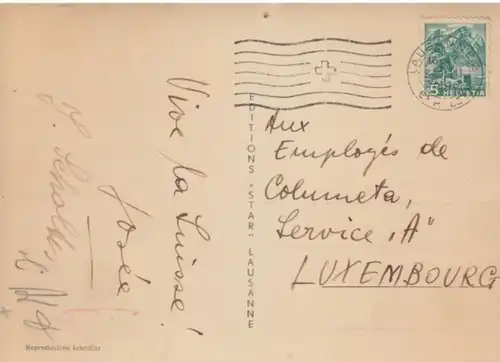 Vive la Suisse!
Josée
J. Scholtes
EDITIONS "STAR" LAUSANNE
Reproduction interdite
Aux
Employés de
Columeta,
Service "A"
LUXEMBOURG
HELVETIA
5